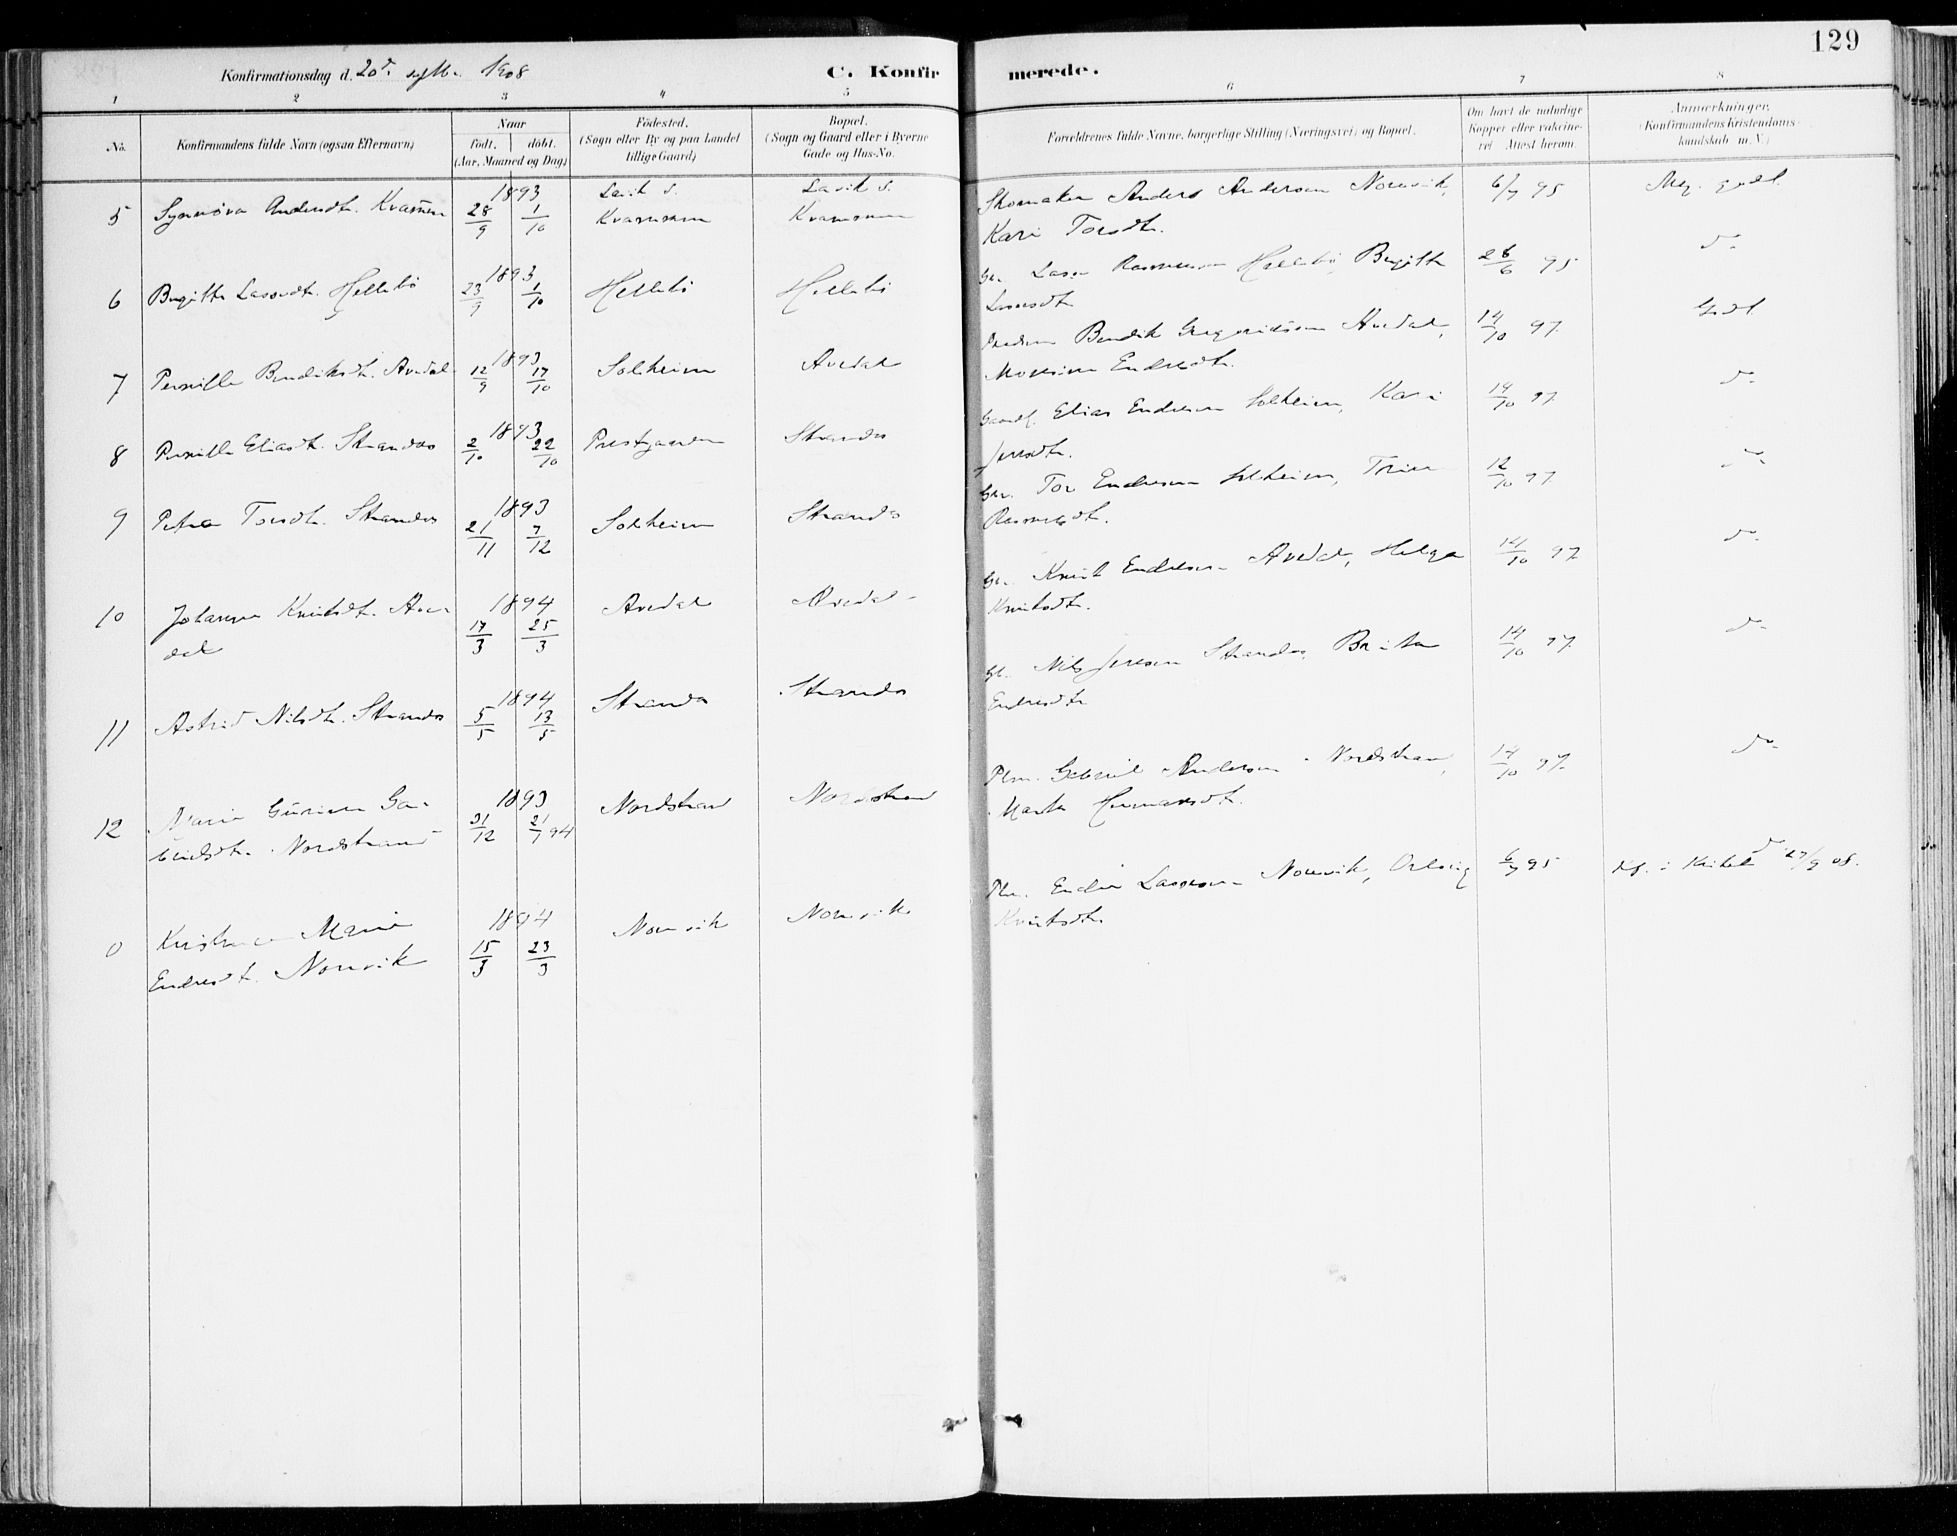 129
Konfirmationsdag d. 20de septbr. 1908
C. Konfirmerede.
1 2 3 4 5 6 7 8
No.
Konfirmandens fulde Navn (ogsaa Efternavn)
Naar
født. døbt.
(Aar, Maaned og Dag)
Fødested.
(Sogn eller By og paa Landet
tillige Gaard)
Bopæl.
(Sogn og Gaard eller i Byerne
Gade og Hus-No.
Forældrenes fulde Navne, borgerlige Stilling (Næringsvei) og Bopæl.
Om havt de naturlige
Kopper eller vakcine-
ret Attest herom.
Anmærkninger.
(Konfirmandens Kristendoms-
kundskab m. V.)
5 Synnøva Andersdtr. Kvammen 1893 28/9 1/10 Lavik s. Kvammen Lavik s. Kvammen Skomaker Anders Andersen Norevik, 6/7 95 Meg. godt.
Kari Torsdtr.
6 Birgitte Lassesdtr. Hellebø 1893 23/9 1/10 Hellebø Hellebø Gbr. Lasse Rasmussen Hellebø, Birgitte 28/6 95 do.
Lassesdtr.
7 Pernille Bendiksdtr. Avedal 1893 12/9 17/10 Solheim Avedal Bendik Gregoriussen Avedal, 14/10 97. Godt
Endresdtr.
8 Pernille Eliasdtr. Strandos 1893 2/10 22/10 Prestgaarden Strandos Elias Endresen Solheim, Kari 14/10 97. do.
Jensdtr.
9 Petra Torsdtr. Strandos 1893 21/11 7/12 Solheim Strandos Gbr. Tor Endresen Solheim, 12/10 97. do.
Rasmusdtr.
10 Johanne Knutsdtr. Ave- 1894 17/3 25/3 Avedal Avedal Gbr. Knut Endresen Avedal, Helga 14/10 97. do.
dal Knutsdtr.
11 Astrid Nilsdtr. Strandos 1894 5/5 13/5 Strandos Strandos Gbr. Nils Jensen Strandos, Brita 14/10 97. do.
Endresdtr.
12 Marie Gurine Ga- 1893 31/12 21/1 94 Nordstrand Nordstrand Plm. Gabriel Andersen Nordstrand, 14/10 97. do.
brielsdtr. Nordstrand Marta Hermansdtr.
0 Marie 1894 15/3 23/3 Norevik Norevik Plm. Endre Lassesen Norevik, 6/7 95 do. Kf. i 27/9 08.
Endresdtr. Norevik Knutsdtr.